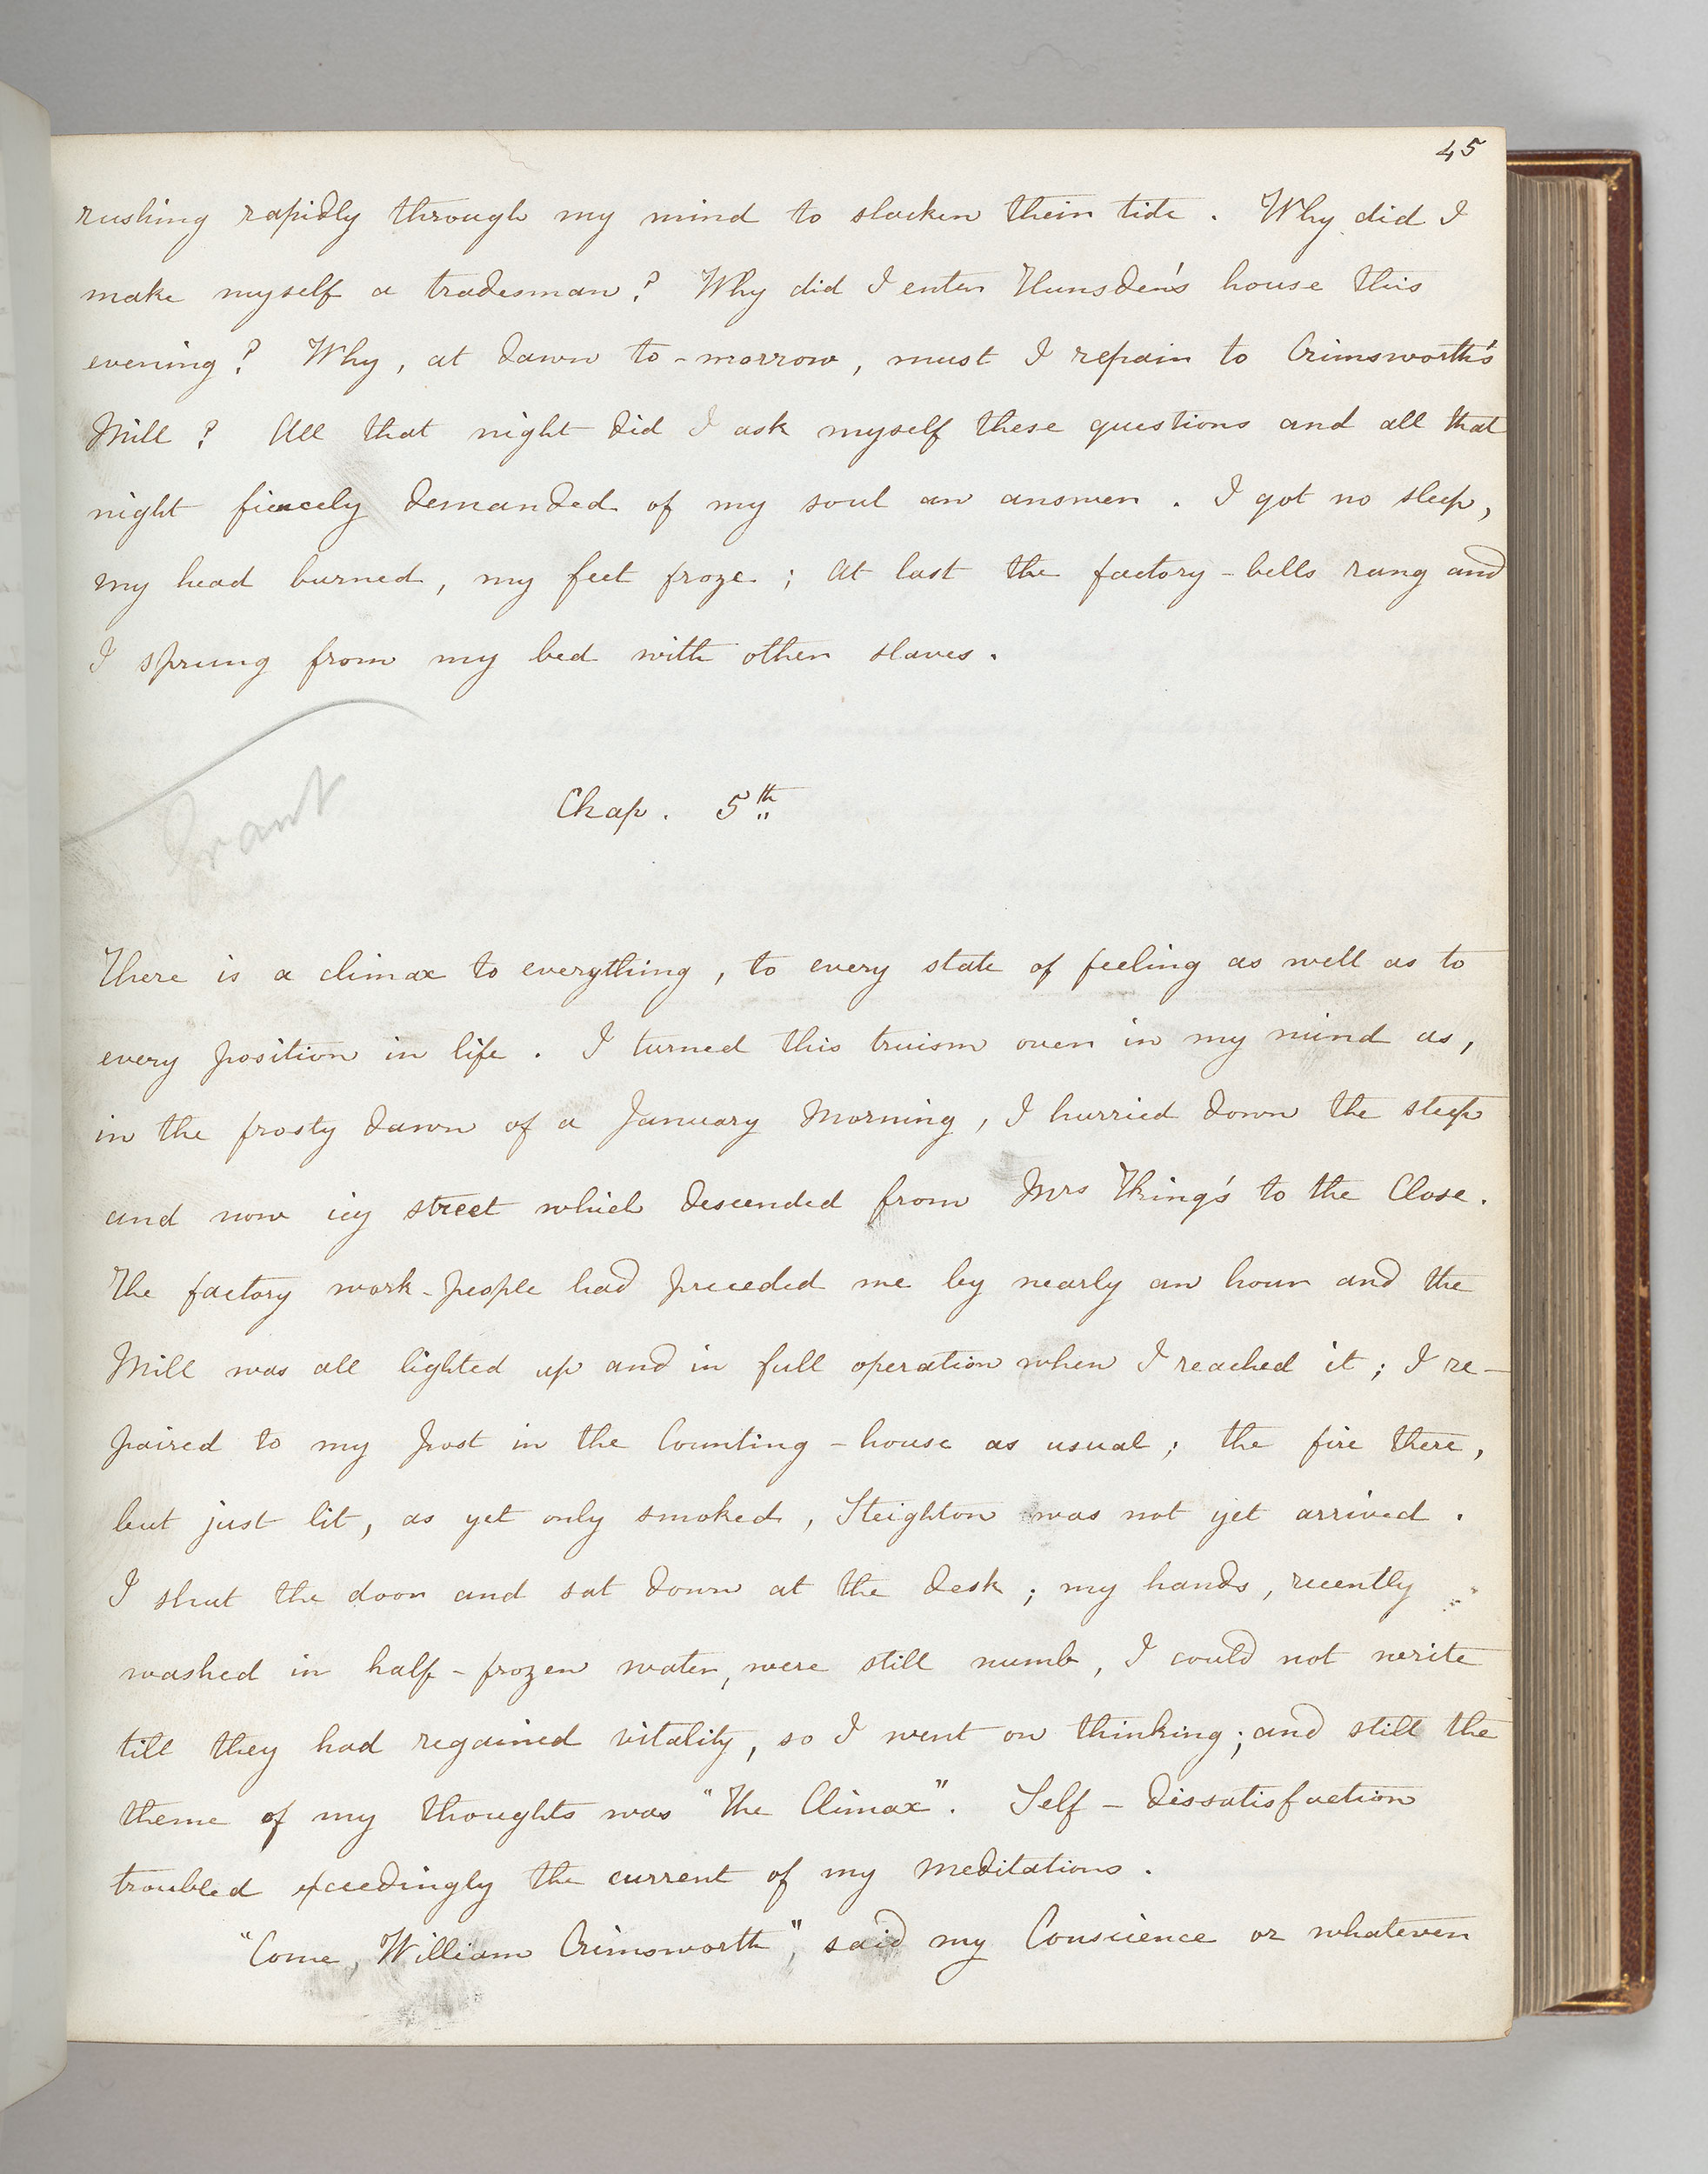 45
rushing rapidly through my mind to slacken their tide. Why did I
make myself a tradesman? Why did I enter Hunsden's house this
evening? Why, at dawn to-morrow, must I repair to Crimsworth's
Mill? All that night did I ask myself these questions and all that
night fiercely demanded of my soul an answer. I got no sleep,
my head burned, my feet froze; at last the factory-bells rang and
I sprung from my bed with other slaves.
Grant
Chap. 5th
There is a climax to everything, to every state of feeling as well as to
every position in life. I turned this truism over in my mind as,
in the frosty dawn of a January Morning, I hurried down the steep
and now icy street which descended from Mrs King's to the Close.
The factory work-people had preceded me by nearly an hour and the
Mill was all lighted up and in full operation when I reached it; I re-
paired to my post in the Counting-house as usual; the fire there,
but just lit, as yet only smoked, Steighton was not yet arrived.
I shut the door and sat down at the desk; my hands, recently
washed in half-frozen water, were still numb, I could not write
till they had regained vitality, so I went on thinking; and still the
theme of my thoughts was "the Climax". Self-dissatisfaction
troubled exceedingly the current of my meditations.
"Come, William Crimsworth", said my Conscience or whatever